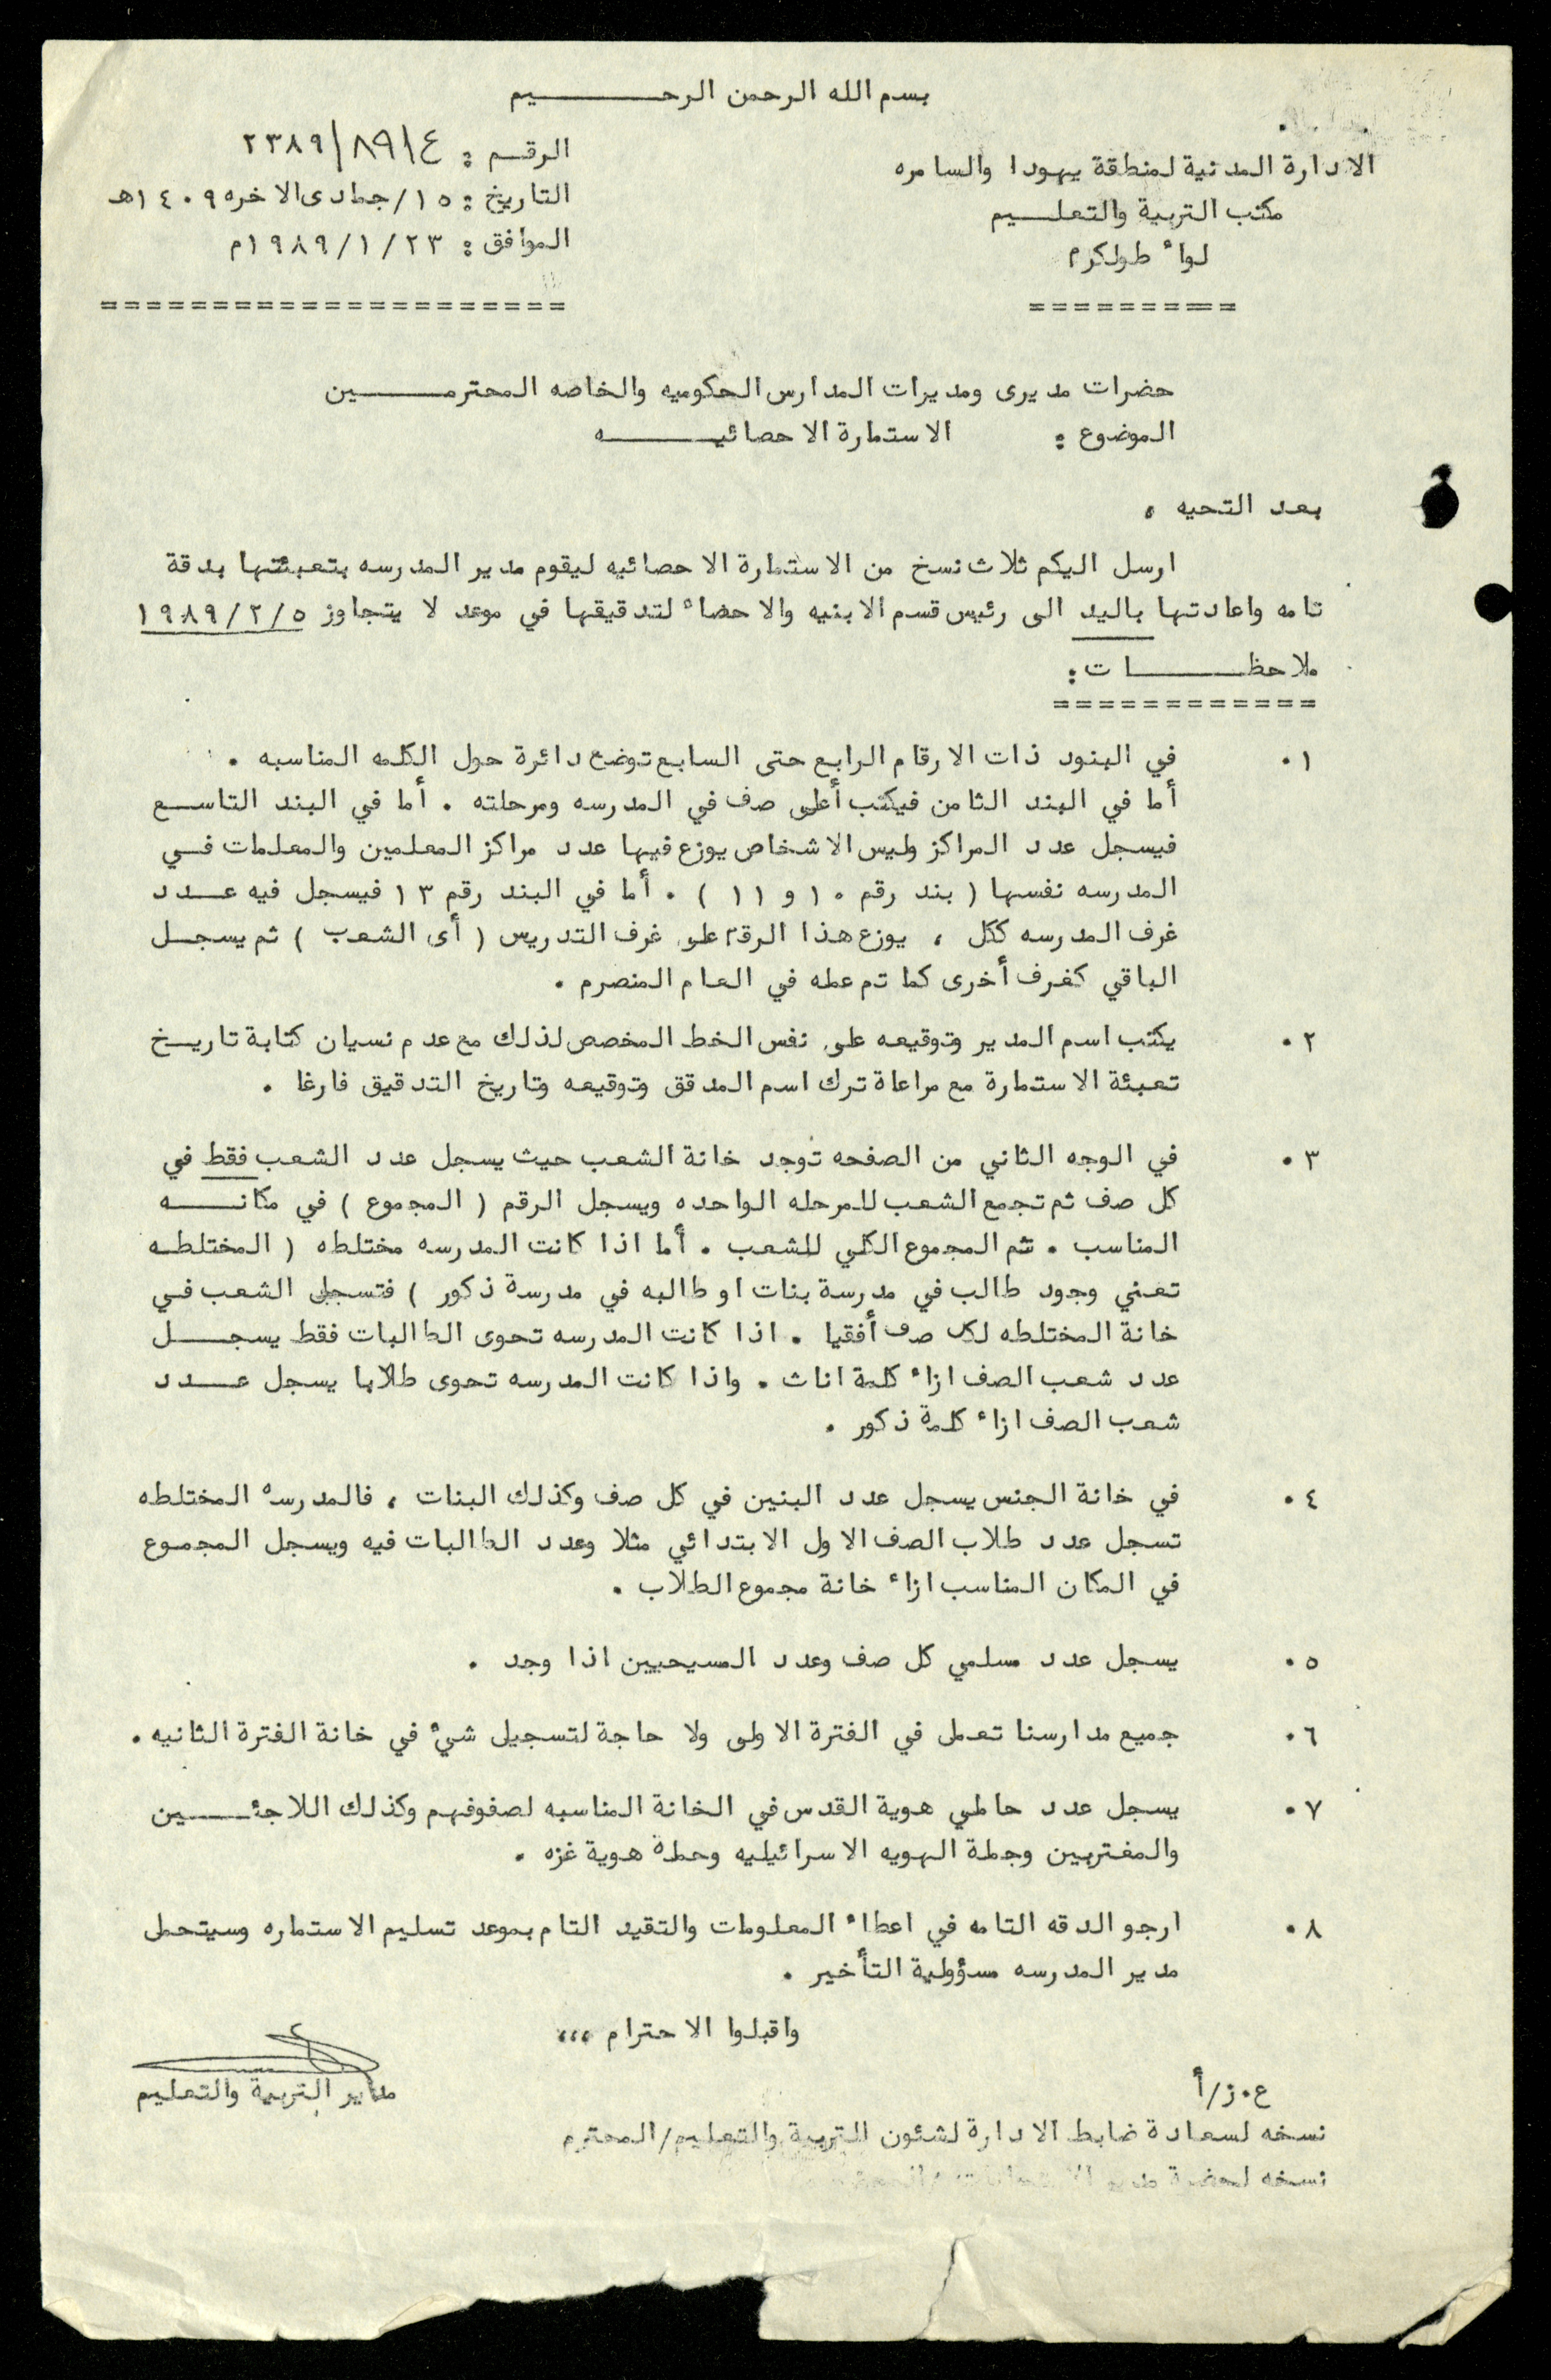 بسم الله الرحمن الرحـــــــيم
الادارة المدنية لمنطقة يهودا والسامره
الرقم : ٢٣٨٩/٨٩/٤
مكتب التربية والتعلـــيم
التاريخ : ١٥/جمادى الاخره ١٤٠٩هـ
لواء طولكرم
الموافق : ١٩٨٩/١/٢٣م
==========
=====================
حضرات مديرى ومديرات المدارس الحكوميه والخاصه المحترمــــــين
الموضوع : الاستمارة الاحصائيــــــــه
بعد التحيه ،
ارسل اليكم ثلاث نسخ من الاستمارة الاحصائيه ليقوم مدير المدرسه بتعبئتها بدقة
تامه واعادتها باليد الى رئيس قسم الابنيه والاحصاء لتدقيقها في موعد لا يتجاوز ١٩٨٩/٢/٥
ملاحظـــــــــات :
============
٠١ في البنود ذات الارقام الرابع حتى السابع توضع دائرة حول الكلمه المناسبه .
أما في البند الثامن فيكتب أعلى صف في المدرسه ومرحلته . أما في البند التاســع
فيسجل عدد المراكز وليس الاشخاص يوزع فيها عدد مراكز المعلمين والمعلمات فــي
المدرسه نفسها ( بند رقم ١٠ و ١١ ) . أما في البند رقم ١٣ فيسجل فيه عـــدد
غرف المدرسه ككل ، يوزع هذا الرقم على غرف التدريس ( أى الشعب ) ثم يسجــل
الباقي كغرف أخرى كما تم عمله في العام المنصرم .
٠٢ يكتب اسم المدير وتوقيعه على نفس الخط المخصص لذلك مع عدم نسيان كتابة تاريــخ
تعبئة الاستمارة مع مراعاة ترك اسم المدقق وتوقيعه وتاريخ التدقيق فارغا .
٠٣ في الوجه الثاني من الصفحه توجد خانة الشعب حيث يسجل عدد الشعب فقط في
كل صف ثم تجمع الشعب للمرحله الواحده ويسجل الرقم ( المجموع ) في مكانـــــه
المناسب . ثم المجموع الكلي للشعب . أما اذا كانت المدرسه مختلطه ( المختلطــه
تعني وجود طالب في مدرسة بنات او طالبه في مدرسة ذكور ) فتسجل الشعب فــي
خانة المختلطه لكل صف أفقيا . اذا كانت المدرسه تحوى الطالبات فقط يسجـــــل
عدد شعب الصف ازاء كلمة اناث . واذا كانت المدرسه تحوى طلابا يسجل عـــدد
شعب الصف ازاء كلمة ذكور .
٠٤ في خانة الجنس يسجل عدد البنين في كل صف وكذلك البنات ، فالمدرسه المختلطه
تسجل عدد طلاب الصف الاول الابتدائي مثلا وعدد الطالبات فيه ويسجل المجموع
في المكان المناسب ازاء خانة مجموع الطلاب .
٠٥ يسجل عدد مسلمي كل صف وعدد المسيحيين اذا وجد .
٠٦ جميع مدارسنا تعمل في الفترة الاولى ولا حاجة لتسجيل شيء في خانة الفترة الثانيه .
٠٧ يسجل عدد حاملي هوية القدس في الخانة المناسبه لصفوفهم وكذلك اللاجئـــــين
والمغتربين وحملة الهويه الاسرائيليه وحملة هوية غزه .
٠٨ ارجو الدقه التامه في اعطاء المعلومات والتقيد التام بموعد تسليم الاستماره وسيتحمل
مدير المدرسه مسؤولية التأخير .
واقبلوا الاحترام ،،،
مدير التربية والتعليم
ع.ز/أ
نسخه لسعادة ضابط الادارة لشئون التربية والتعليم/المحترم
نسخه لحضرة مدير